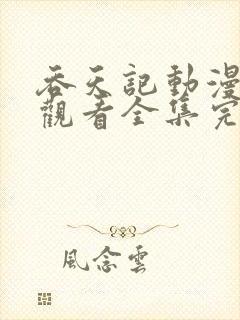 吞天記動漫
觀看全集完
風念雲